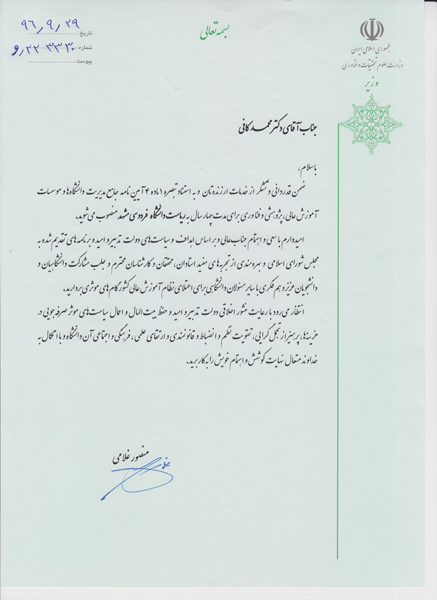 بسمه تعالی
تاریخ: ۹۶٫۹٫۲۹
شماره: و٫۲۲۳۳۳۰
پیوست:
جمهوری اسلامی ایران
وزارت علوم، تحقیقات و فناوری
وزیر
جناب آقای دکتر محمد کافی
باسلام،
ضمن قدردانی و تشکر از خدمات ارزنده‌تان و به استناد تبصره ۱ ماده ۴ آیین نامه جامع مدیریت دانشگاه‌ها و موسسات
آموزش عالی، پژوهشی و فناوری برای مدت چهار سال به ریاست دانشگاه فردوسی مشهد منصوب می‌شوید.
امیدوارم با سعی و اهتمام جناب‌عالی و بر اساس اهداف و سیاست‌های دولت تدبیر و امید و برنامه‌های تقدیم شده به
مجلس شورای اسلامی و بهره‌مندی از تجربه‌های مفید استادان، محققان و کارشناسان محترم و جلب مشارکت دانشگاهیان و
دانشجویان عزیز و هم فکری با سایر مسئولان دانشگاهی برای اعتلای نظام آموزش عالی کشور گام‌های موثری بردارید.
انتظار می‌رود با رعایت منشور اخلاقی دولت تدبیر و امید و حفظ بیت‌المال و اعمال سیاست‌های موثر صرفه‌جویی در
هزینه‌ها، پرهیز از تجمل گرایی، تقویت نظم و انضباط و قانونمندی و ارتقای علمی، فرهنگی و اجتماعی آن دانشگاه و با اتکال به
خداوند متعال نهایت کوشش و اهتمام خویش را به کار برید.
منصور غلامی